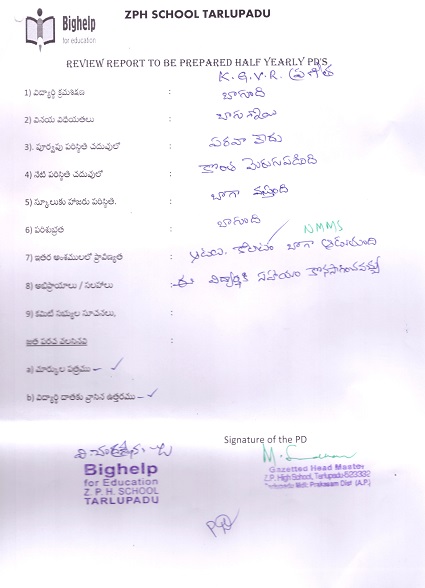 ZPH SCHOOL TARLUPADU
Bighelp
for education
REVIEW REPORT TO BE PREPARED HALF YEARLY PD'S
K. G. V. R. ప్రణీత
1) విద్యార్థి క్రమశిక్షణ : బాగుంది
2) వినయ విధేయతలు : బాగున్నాయి
3). పూర్వపు పరిస్థితి చదువులో : పరవా లేదు
4) నేటి పరిస్థితి చదువులో : కొంత మెరుగుపడింది
5) స్కూలుకు హాజరు పరిస్థితి. : బాగా వస్తుంది
6) పరిశుభ్రత : బాగుంది
NMMS
7) ఇతర అంశములలో ప్రావిణ్యత : ఆటలు, కోలాటం బాగా ఆడుతుంది
8) అభిప్రాయాలు / సలహాలు : ఈ విద్యార్థికి సహాయం కొనసాగించవచ్చు
9) కమిటీ సభ్యుల సూచనలు, :
జత పరచ వలసినవి :
a) మార్కుల పత్రము – ✓
b) విద్యార్థి దాతకు వ్రాసిన ఉత్తరము – ✓
Signature of the PD
Bighelp
for Education
Z. P. H. SCHOOL
TARLUPADU
Gazetted Head Master
Z.P. High School, Tarlupadu-523332
Tarlupadu Mdl: Prakasam Dist (A.P.)